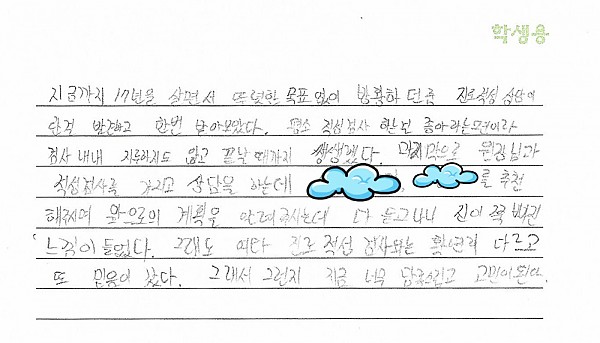 학생용
지금까지 17년을 살면서 뚜렷한 목표 없이 방황하던 중 진로적성 상담이
란걸 발견하고 한번 받아보았다. 평소 적성검사 한번 좋아라는
검사 내내 지루하지도 않고 끝날 때까지 생생했다. 마지막으로 원장님과
적성검사를 가지고 상담을 하는데 를 추천
해주시며 앞으로의 계획을 안려주시는데 다 듣고나니 진이 쭉 빠진
느낌이 들었다. 그래도 여타 진로 적성 검사와는 확연히 다르고
또 믿음이 갔다. 그래서 그런지 지금 너무 답답하고 고민이된다.